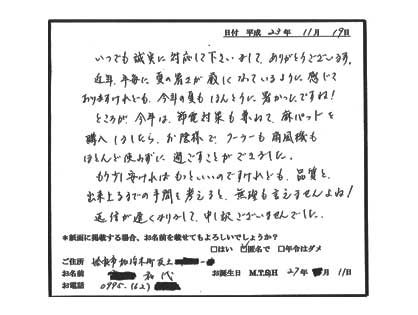 日付 平成 23年 11月 19日
いつでも誠実に対応して下さいまして、ありがとうございます。
近年、平毎に夏の暑さが厳しくなっているように感じて
おりますけれども、今年の夏もほんとうに暑かったですね!
ところが、今年は、節電対策も兼ねて、麻パッドを
購入しましたら、お陰様で、クーラーも扇風機も
ほとんど使わずに過ごすことができました。
もう少し安ければもっといいのですけれども、品質と、
出来上るまでの手間を考えると、無理も言えませんよね!
返信が遅くなりまして、申し訳ございませんでした。
*紙面に掲載する場合、お名前を載せてもよろしいでしょうか?
□はい ☑匿名で □年令はダメ
ご住所 姶良市加治木町反土
お名前 お誕生日 M.T.S.H 27年 月11日
お電話 0995.(62)